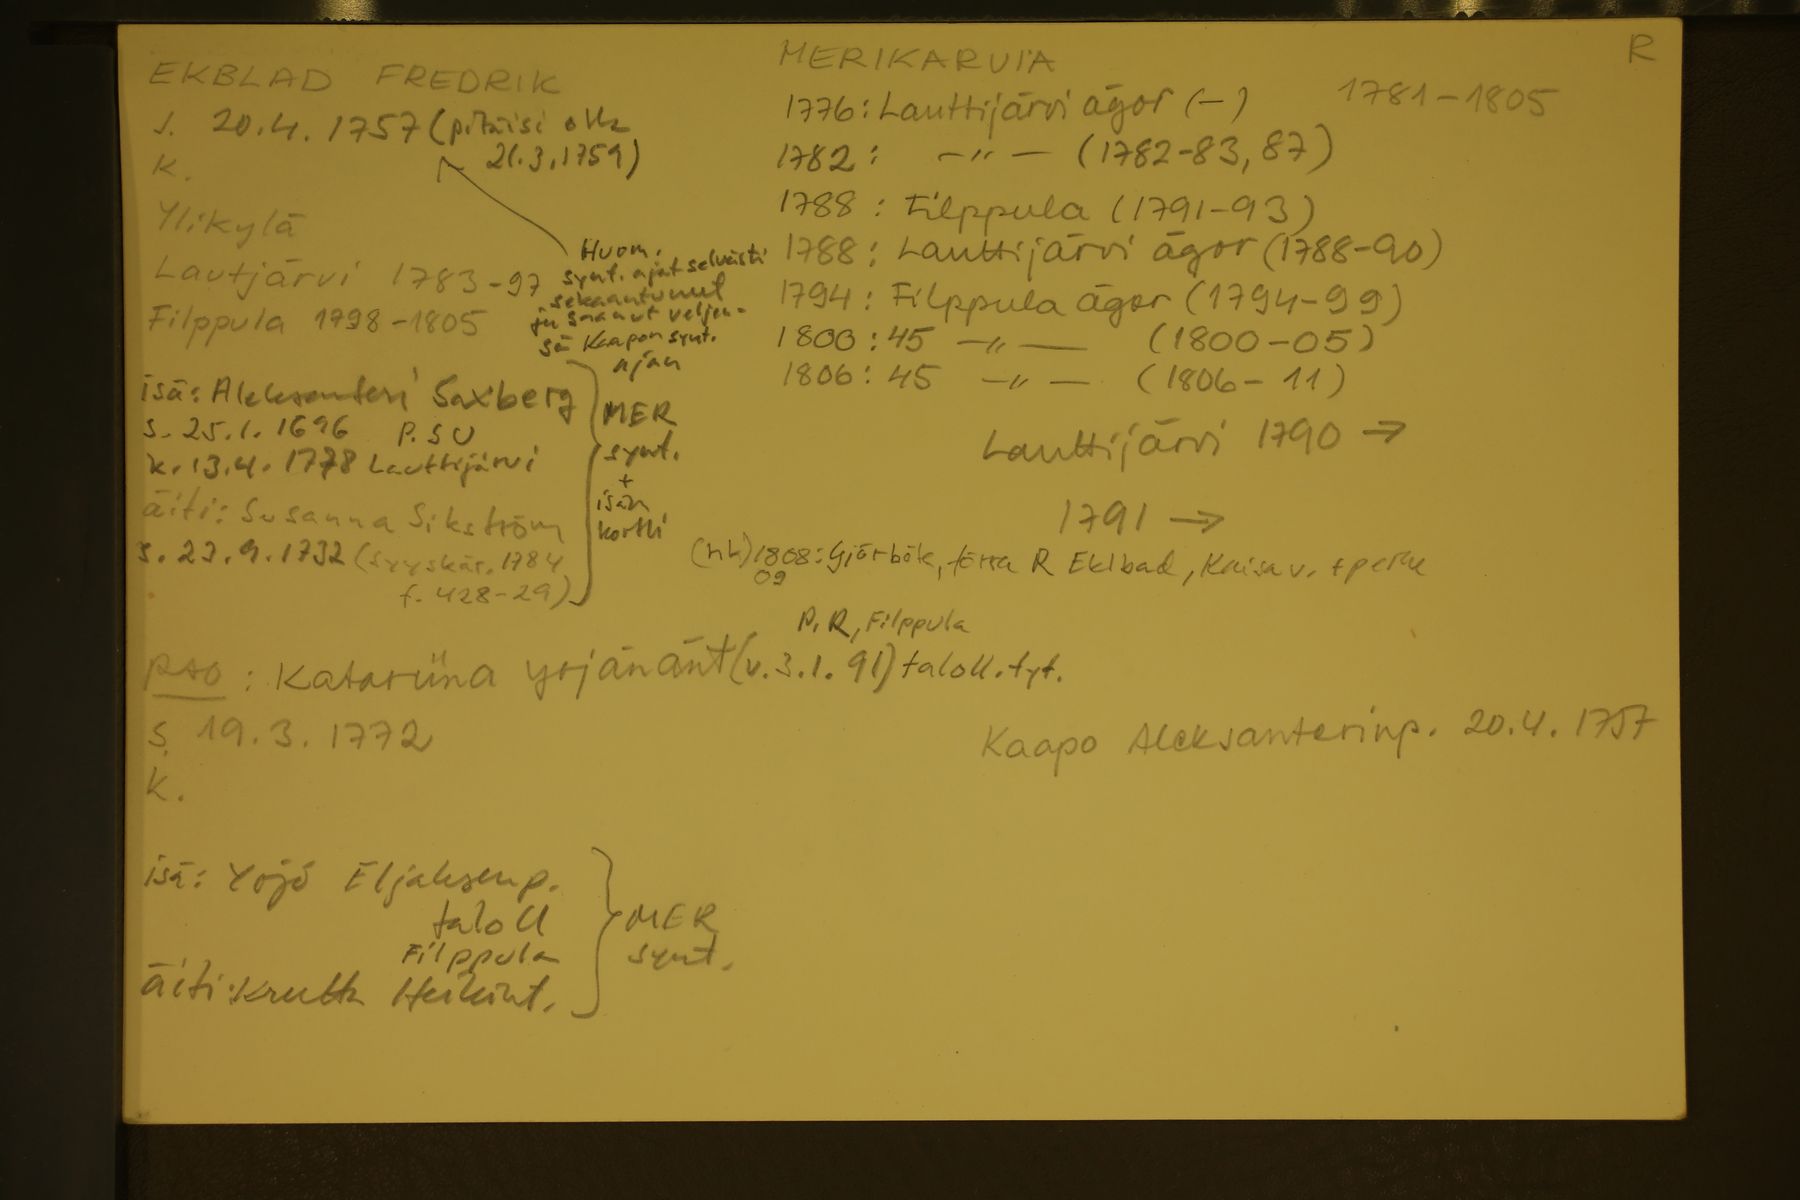 EKBLAD FREDRIK
s. 20.4. 1757 (pitäisi olla
21.3.1759)
k.
Ylikylä
Lautjärvi 1783-97
Filppula 1798-1805
Huom.
synt. ajat selvästi
sekaantunut
ja saanut veljen-
sä Kaapon synt.
ajan
isä: Aleksanteri Saxberg
s. 25.1. 1696 P. SU
k. 13.4. 1778 Lauttijärvi
äiti: Susanna Sikström
s. 23.9.1732 (syyskär. 1784
f. 428-29)
MER
synt.
+
isän
kortti
PSO: Katariina Yrjänänt (v. 3.1. 91) taloll. tyt.
P. R, Filppula
s. 19.3. 1772
k.
isä: Yrjö Eljaksenp.
taloll
Filppula
äiti: Heikint.
MER
synt.
MERIKARVIA
R
1781-1805
1776: Lauttijärvi ägor (-)
1782: -"- (1782-83, 87)
1788: Filppula (1791-93)
1788: Lauttijärvi ägor (1788-90)
1794: Filppula ägor (1794-99)
1800: 45 -"- (1800-05)
1806: 45 -"- (1806-11)
Lauttijärvi 1790 →
1791 →
(hk) 1808: Gjörbök, R Eklbad, Kaisa v. + perhe
09
Kaapo Aleksanterinp. 20.4. 1757